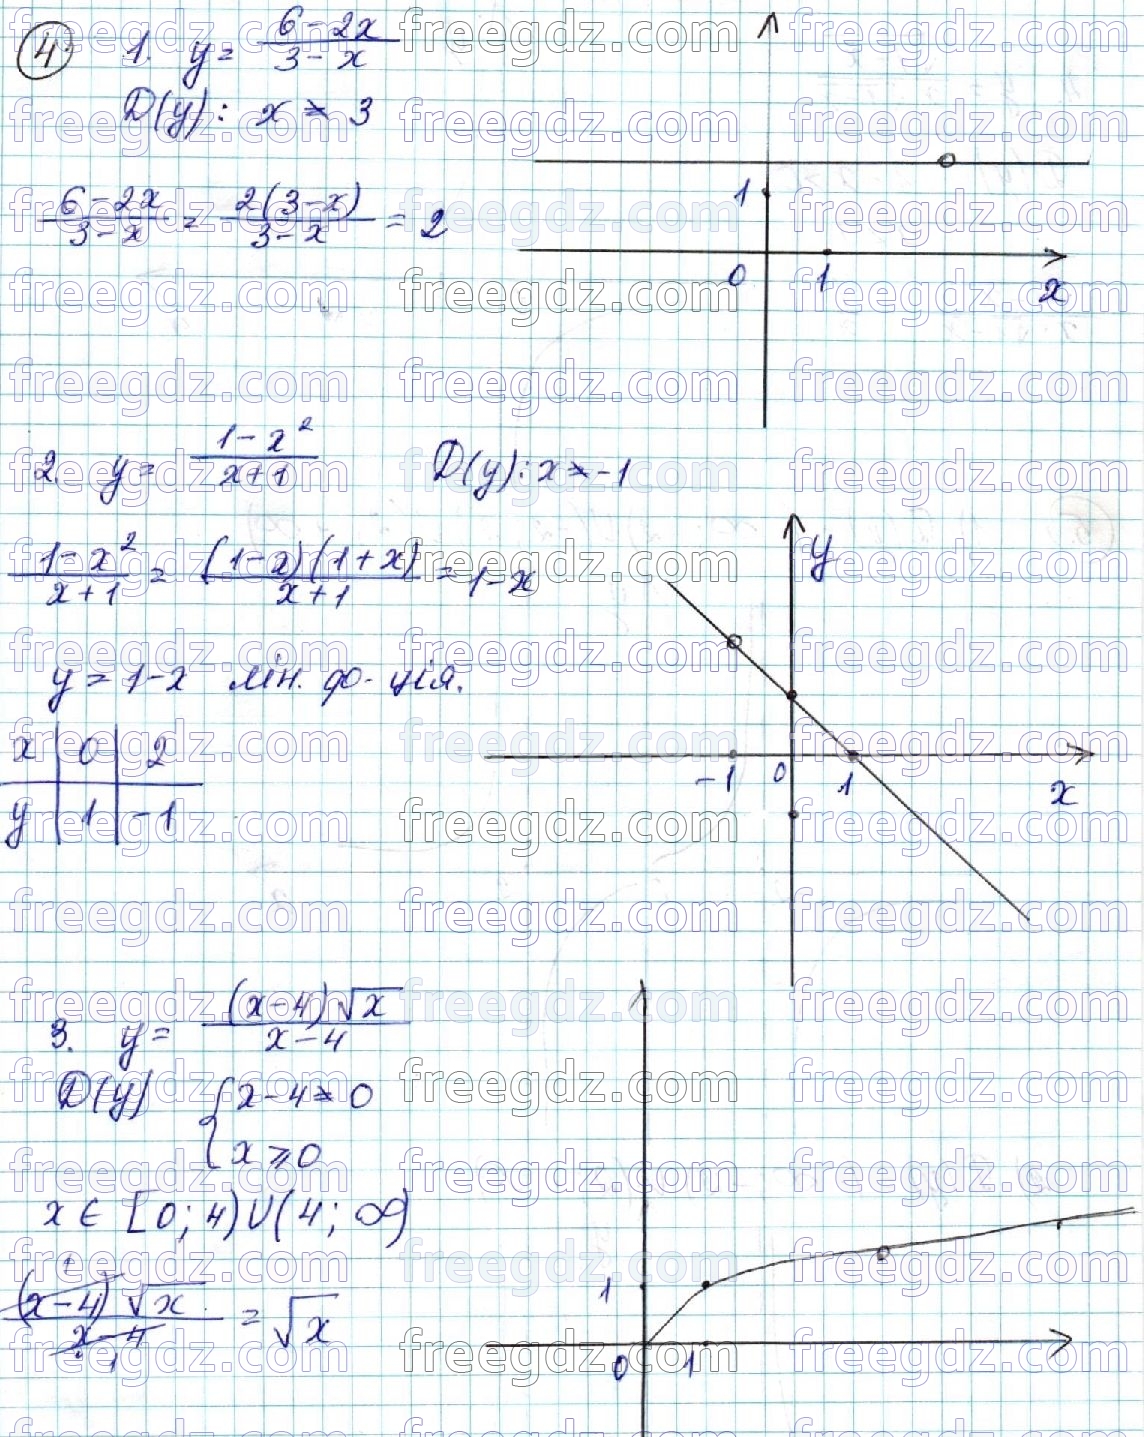 4 1. y = (6 - 2x)/(3 - x)
D(y): x ≠ 3
(6 - 2x)/(3 - x) = 2(3 - x)/(3 - x) = 2
1
0 1 x
2. y = (1 - x²)/(x + 1) D(y): x ≠ -1
(1 - x²)/(x + 1) = (1 - x)(1 + x)/(x + 1) = 1 - x
y
y = 1 - x лін. ф-ція.
x | 0 | 2
y | 1 | -1
-1 0 1 x
3. y = (x - 4)√x/(x - 4)
D(y) { x - 4 ≠ 0
x ≥ 0
x ∈ [0; 4) ∪ (4; ∞)
(x - 4)√x/(x - 4) = √x
1
1
1
0 1
freegdz.com